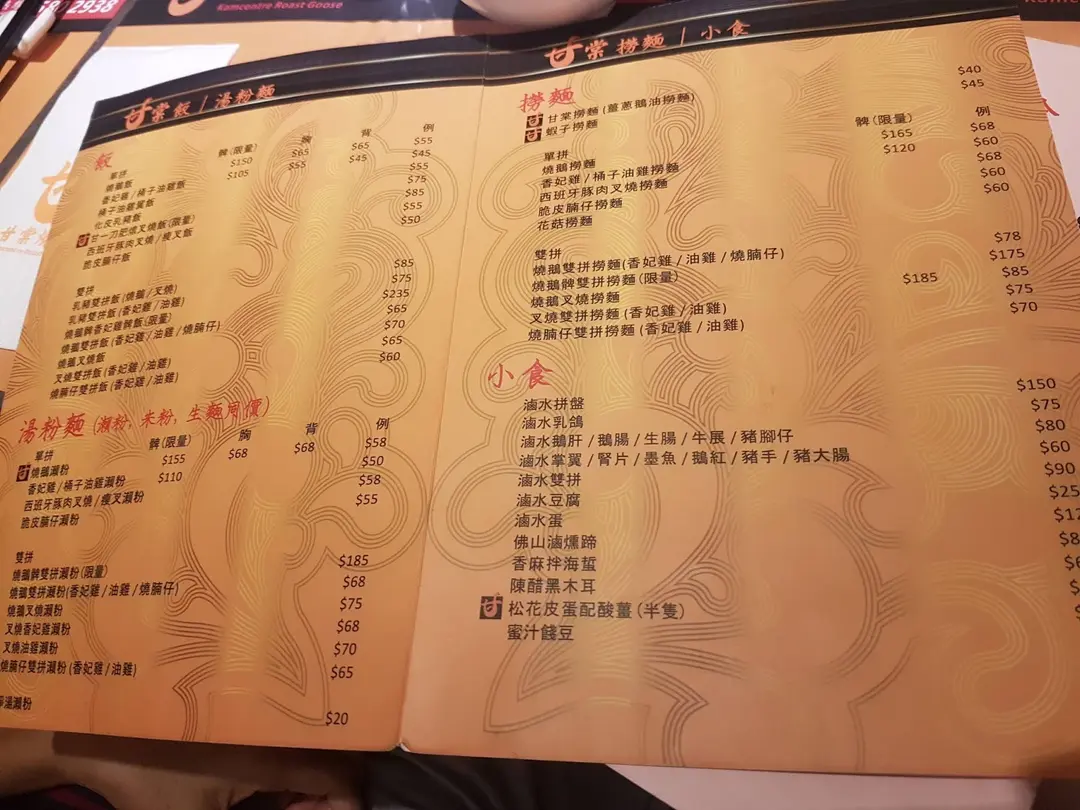 2938
Kamcentre Roast Goose
甘棠飯 | 湯粉麵
飯
髀(限量) 胸 背 例
單拼
燒鵝飯 $150 $65 $65 $55
香妃雞/桶子油雞飯 $105 $55 $45 $45
桶子油雞髀飯 $55
化皮乳豬飯 $75
甘一刀肥燶叉燒飯(限量) $85
西班牙豚肉叉燒/瘦叉飯 $55
脆皮腩仔飯 $50
雙拼
乳豬雙拼飯(燒鵝/叉燒) $85
乳豬雙拼飯(香妃雞/油雞) $75
燒鵝髀香妃雞髀飯(限量) $235
燒鵝雙拼飯(香妃雞/油雞/燒腩仔) $65
燒鵝叉燒飯 $70
叉燒雙拼飯(香妃雞/油雞) $65
燒腩仔雙拼飯(香妃雞/油雞) $60
湯粉麵(瀨粉, 米粉, 生麵同價)
髀(限量) 胸 背 例
單拼
燒鵝瀨粉 $155 $68 $68 $58
香妃雞/桶子油雞瀨粉 $110 $50
西班牙豚肉叉燒/瘦叉瀨粉 $58
脆皮腩仔瀨粉 $55
雙拼
燒鵝髀雙拼瀨粉(限量) $185
燒鵝雙拼瀨粉(香妃雞/油雞/燒腩仔) $68
燒鵝叉燒瀨粉 $75
叉燒香妃雞瀨粉 $68
叉燒油雞瀨粉 $70
燒腩仔雙拼瀨粉(香妃雞/油雞) $65
湯瀨粉 $20
甘棠撈麵 | 小食
撈麵
甘棠撈麵(薑蔥鵝油撈麵) $40
蝦子撈麵 $45
髀(限量) 例
單拼
燒鵝撈麵 $165 $68
香妃雞/桶子油雞撈麵 $120 $60
西班牙豚肉叉燒撈麵 $68
脆皮腩仔撈麵 $60
花菇撈麵 $60
雙拼
燒鵝雙拼撈麵(香妃雞/油雞/燒腩仔) $78
燒鵝髀雙拼撈麵(限量) $185 $175
燒鵝叉燒撈麵 $85
叉燒雙拼撈麵(香妃雞/油雞) $75
燒腩仔雙拼撈麵(香妃雞/油雞) $70
小食
滷水拼盤 $150
滷水乳鴿 $75
滷水鵝肝/鵝腸/生腸/牛展/豬腳仔 $80
滷水掌翼/腎片/墨魚/鵝紅/豬手/豬大腸 $60
滷水雙拼 $90
滷水豆腐 $25
滷水蛋
佛山滷燻蹄
香麻拌海蜇
陳醋黑木耳
松花皮蛋配酸薑(半隻)
蜜汁餞豆